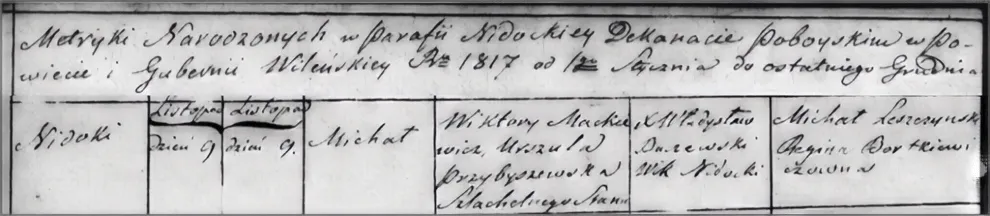 Metryki Narodzonych w Parafii Nidockiey Dekanacie Poboyskim w Po-
wiecie i Gubernii Wileńskiey Rzu 1817 od 1go Stycznia do ostatniego Grudnia
Nidoki
Listopad
dzień 9
Listopad
dzień 9.
Michał
Wiktory Mackie
wicz, Urszula
Przybyszewska
Szlachetnego Stanu
X Władysław
Wik Nidocki
Michał Leszczynsk
Regina Bortkiewi
czowna